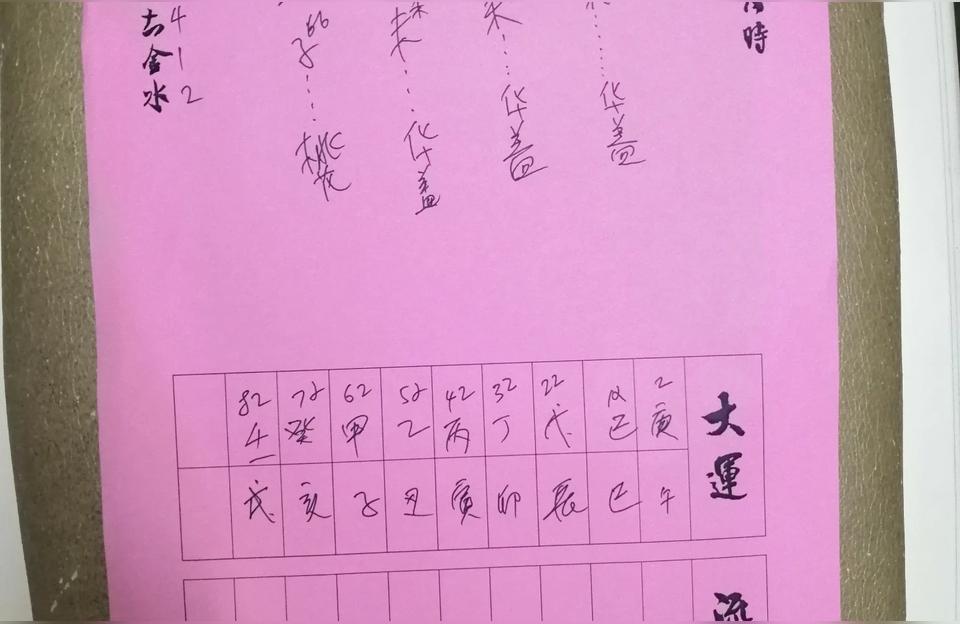 時
……华盖
未…华盖
未…华盖
子…桃花
土4
金1
水2
大運
2 庚 午
12 己 巳
22 戊 辰
32 丁 卯
42 丙 寅
52 乙 丑
62 甲 子
72 癸 亥
82 壬 戌
流